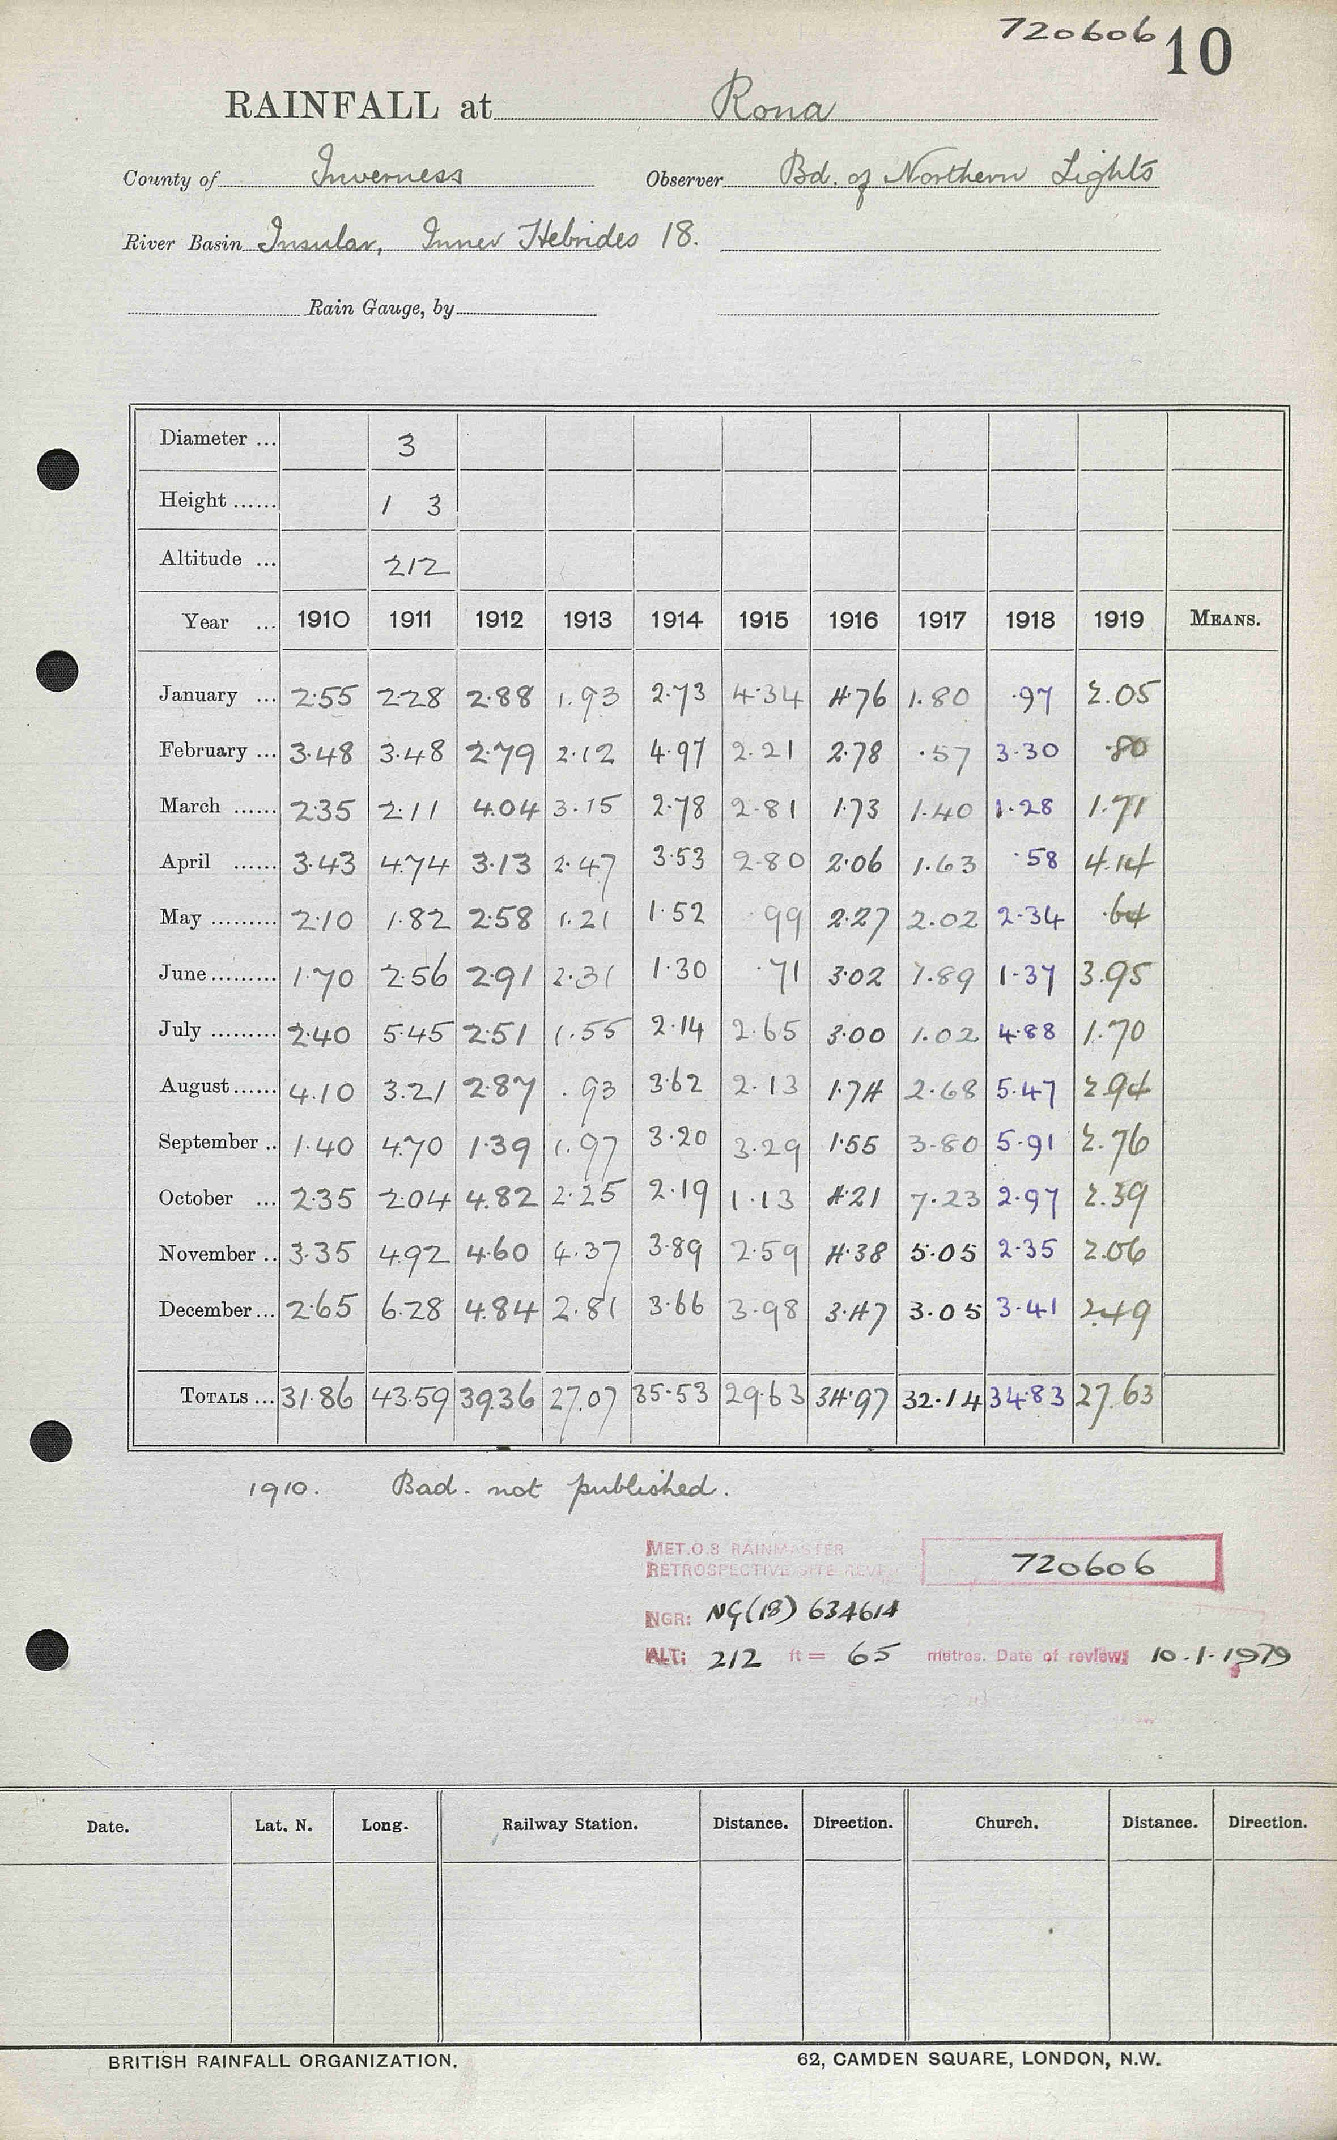 720606 10
RAINFALL at Rona
County of Inverness Observer Bd. of Northern Lights
River Basin Insular, Inner Hebrides 18.
Rain Gauge, by
Diameter ... 3
Height ...... 1 3
Altitude ... 212
Year ... 1910 1911 1912 1913 1914 1915 1916 1917 1918 1919 MEANS.
January ... 2.55 2.28 2.88 1.93 2.73 4.34 4.76 1.80 .97 2.05
February ... 3.48 3.48 2.79 2.12 4.97 2.21 2.78 .57 3.30 .80
March ...... 2.35 2.11 4.04 3.15 2.78 2.81 1.73 1.40 1.28 1.71
April ...... 3.43 4.74 3.13 2.47 3.53 2.80 2.06 1.63 .58 4.14
May ......... 2.10 1.82 2.58 1.21 1.52 .99 2.27 2.02 2.34 .64
June ......... 1.70 2.56 2.91 2.31 1.30 .71 3.02 1.89 1.37 3.95
July ......... 2.40 5.45 2.51 1.55 2.14 2.65 3.00 1.02 4.88 1.70
August ...... 4.10 3.21 2.87 .93 3.62 2.13 1.74 2.68 5.47 2.94
September .. 1.40 4.70 1.39 1.97 3.20 3.29 1.55 3.80 5.91 2.76
October ... 2.35 2.04 4.82 2.25 2.19 1.13 4.21 7.23 2.97 2.39
November .. 3.35 4.92 4.60 4.37 3.89 2.59 4.38 5.05 2.35 2.06
December ... 2.65 6.28 4.84 2.81 3.66 3.98 3.47 3.05 3.41 2.49
TOTALS ... 31.86 43.59 39.36 27.07 35.53 29.63 34.97 32.14 34.83 27.63
1910. Bad. not published.
MET.O.8 RAINMASTER
RETROSPECTIVE SITE REVIEW 720606
NGR: NG(18) 634614
ALT: 212 ft = 65 metres. Date of review: 10.1.1979
Date. Lat. N. Long. Railway Station. Distance. Direction. Church. Distance. Direction.
BRITISH RAINFALL ORGANIZATION. 62, CAMDEN SQUARE, LONDON, N.W.